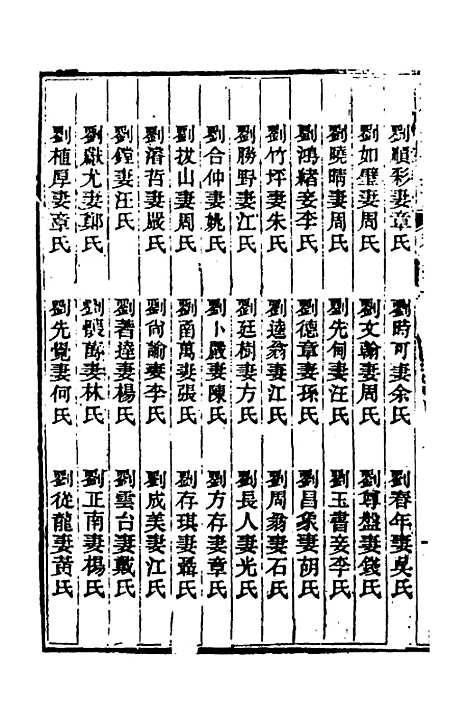 劉順彩妻章氏
劉時可妻余氏
劉春年妻吳氏
劉如璧妻周氏
劉文翰妻周氏
劉尊盤妻錢氏
劉曉晴妻周氏
劉先甸妻汪氏
劉玉書妾李氏
劉鴻緒妾李氏
劉德章妻孫氏
劉昌象妻胡氏
劉竹坪妻朱氏
劉逵翁妻江氏
劉周翁妻石氏
劉勝野妻江氏
劉廷樹妻方氏
劉長人妻光氏
劉合仲妻姚氏
劉卜嚴妻陳氏
劉方存妻章氏
劉拔山妻周氏
劉南萬妻張氏
劉存琪妻聶氏
劉濬哲妻嚴氏
劉尙諭妻李氏
劉成美妻江氏
劉鏜妻汪氏
劉著達妻楊氏
劉雲台妻戴氏
劉獻尤妻鄭氏
劉懷萬妻林氏
劉正南妻楊氏
劉植厚妻章氏
劉先覺妻何氏
劉從龍妻黃氏